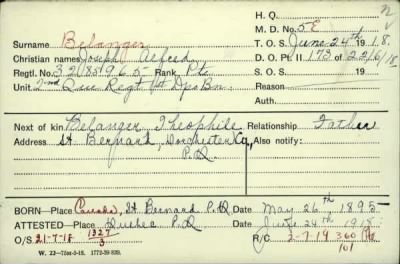 H. Q.
M. D. No. 5E
Surname Belanger T. O. S. June 24th 1918.
Christian names Joseph Alfred D. O. Pt. II 173 of 22/6/18
Regtl. No. 3208596.5 Rank Pte S. O. S. 19
Unit 2nd Que Regt 1st Dps Bn. Reason
Auth.
Next of kin Belanger Theophile Relationship Father
Address St Bernard, Dorchester Co, Also notify:
P.Q.
BORN—Place Canada, St Bernard P.Q Date May 26th 1895
ATTESTED—Place Quebec P.Q Date June 24th 1918
O/S 21-7-18 1327/3 R/C 2-7-19 360
101
W. 22—75M-5-18. 1772-39-839.